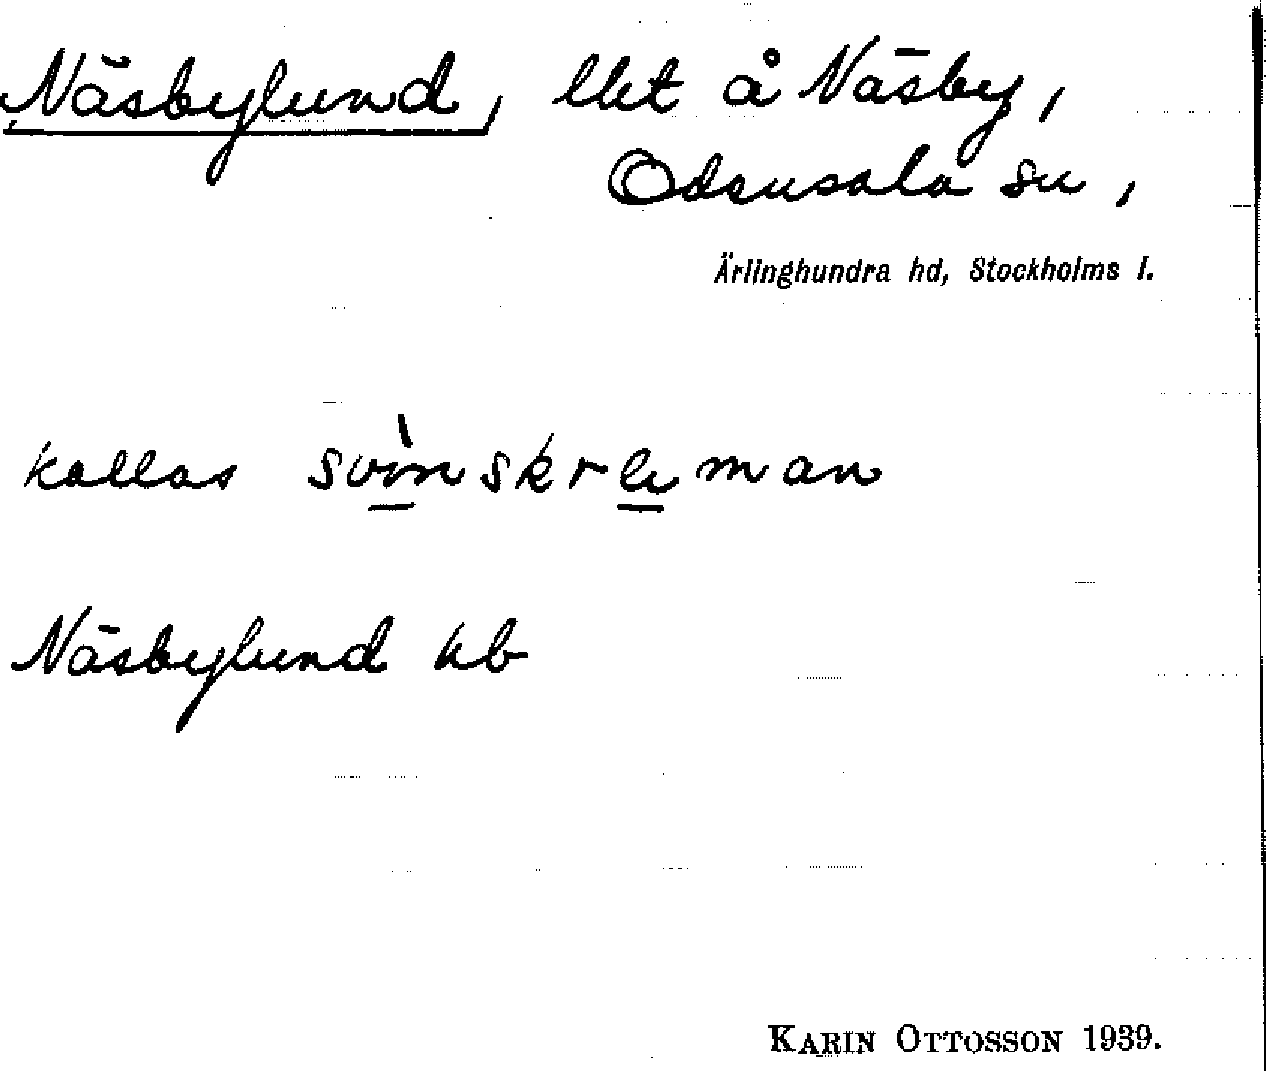 Näsbylund, llet å Näsby,
Odensala sn,
Ärlinghundra hd, Stockholms l.
kallas
Näsbylund kb
KARIN OTTOSSON 1939.